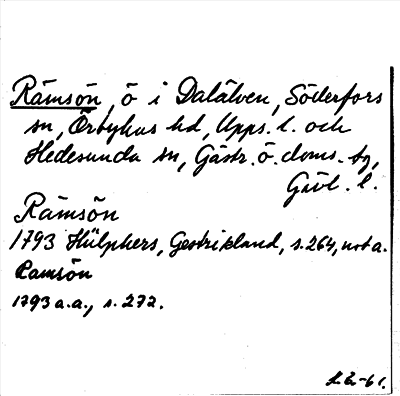 Rämsön, ö i Dalälven, Söderfors
sn, Örbyhus hd, Upps. l. och
Hedesunda sn, Gästr. ö. doms. tg,
Gävl. l.
Rämsön
1793 Hülphers, Gestrikland, s. 264, not a.
Ramsön
1793 a.a., s. 272.